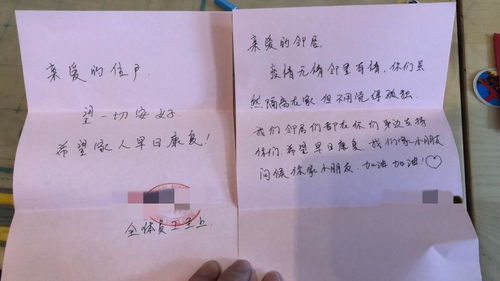 亲爱的住户
望一切安好
希望家人早日康复!
全体员工上
亲爱的邻居
疫情无情邻里有情,你们虽
然隔离在家但不用觉得孤独
我们邻居们都在你们身边支持
你们.希望早日康复.我们家小朋友
问候你家小朋友,加油加油!♡